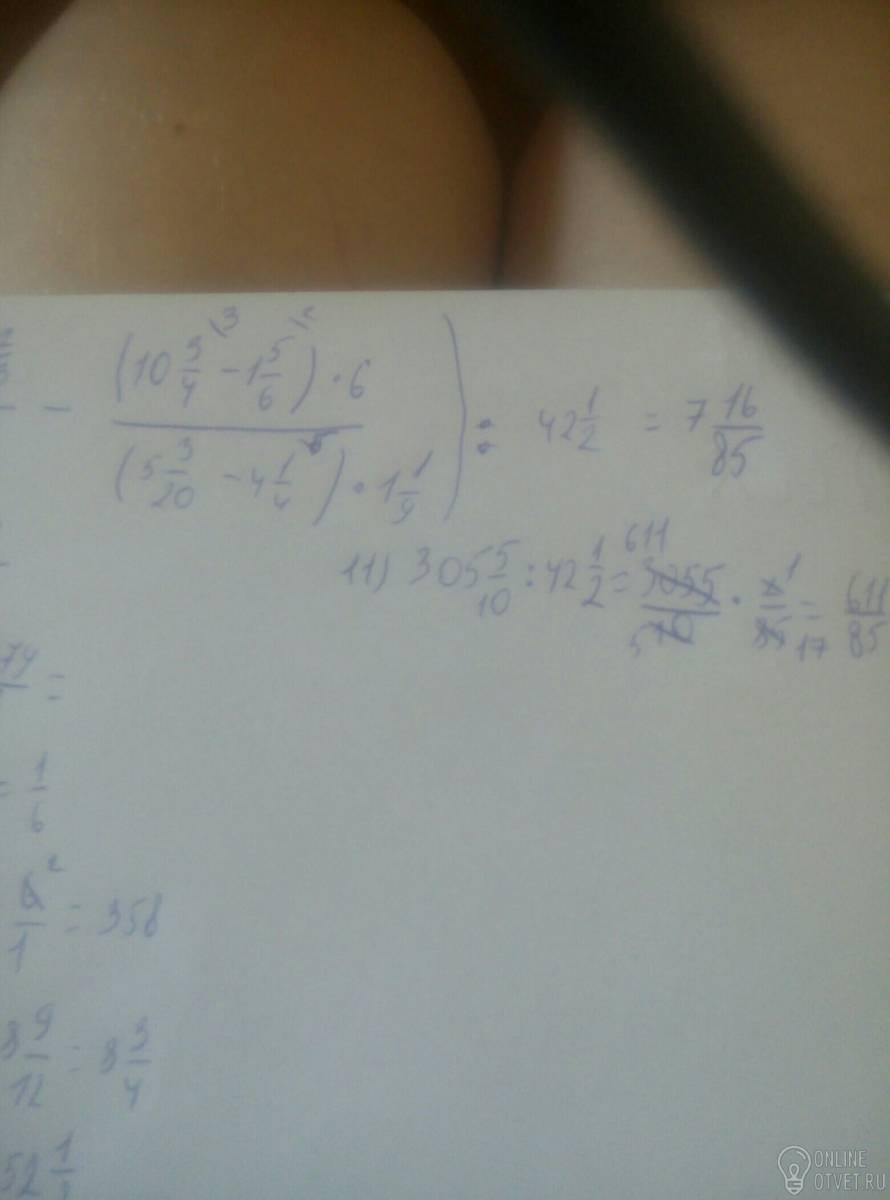 - (10 3/4 \3 - 1 5/6 \2) · 6 / (5 3/20 - 4 1/4 \5) · 1 1/9 ) : 42 1/2 = 7 16/85
11) 305 5/10 : 42 1/2 = 3055/10 · 2/85 = 611/85
611 1
5 17
74 =
= 1/6
6/1 2 = 358
8 9/12 = 8 3/4
52 1/
ONLINE
OTVET.RU